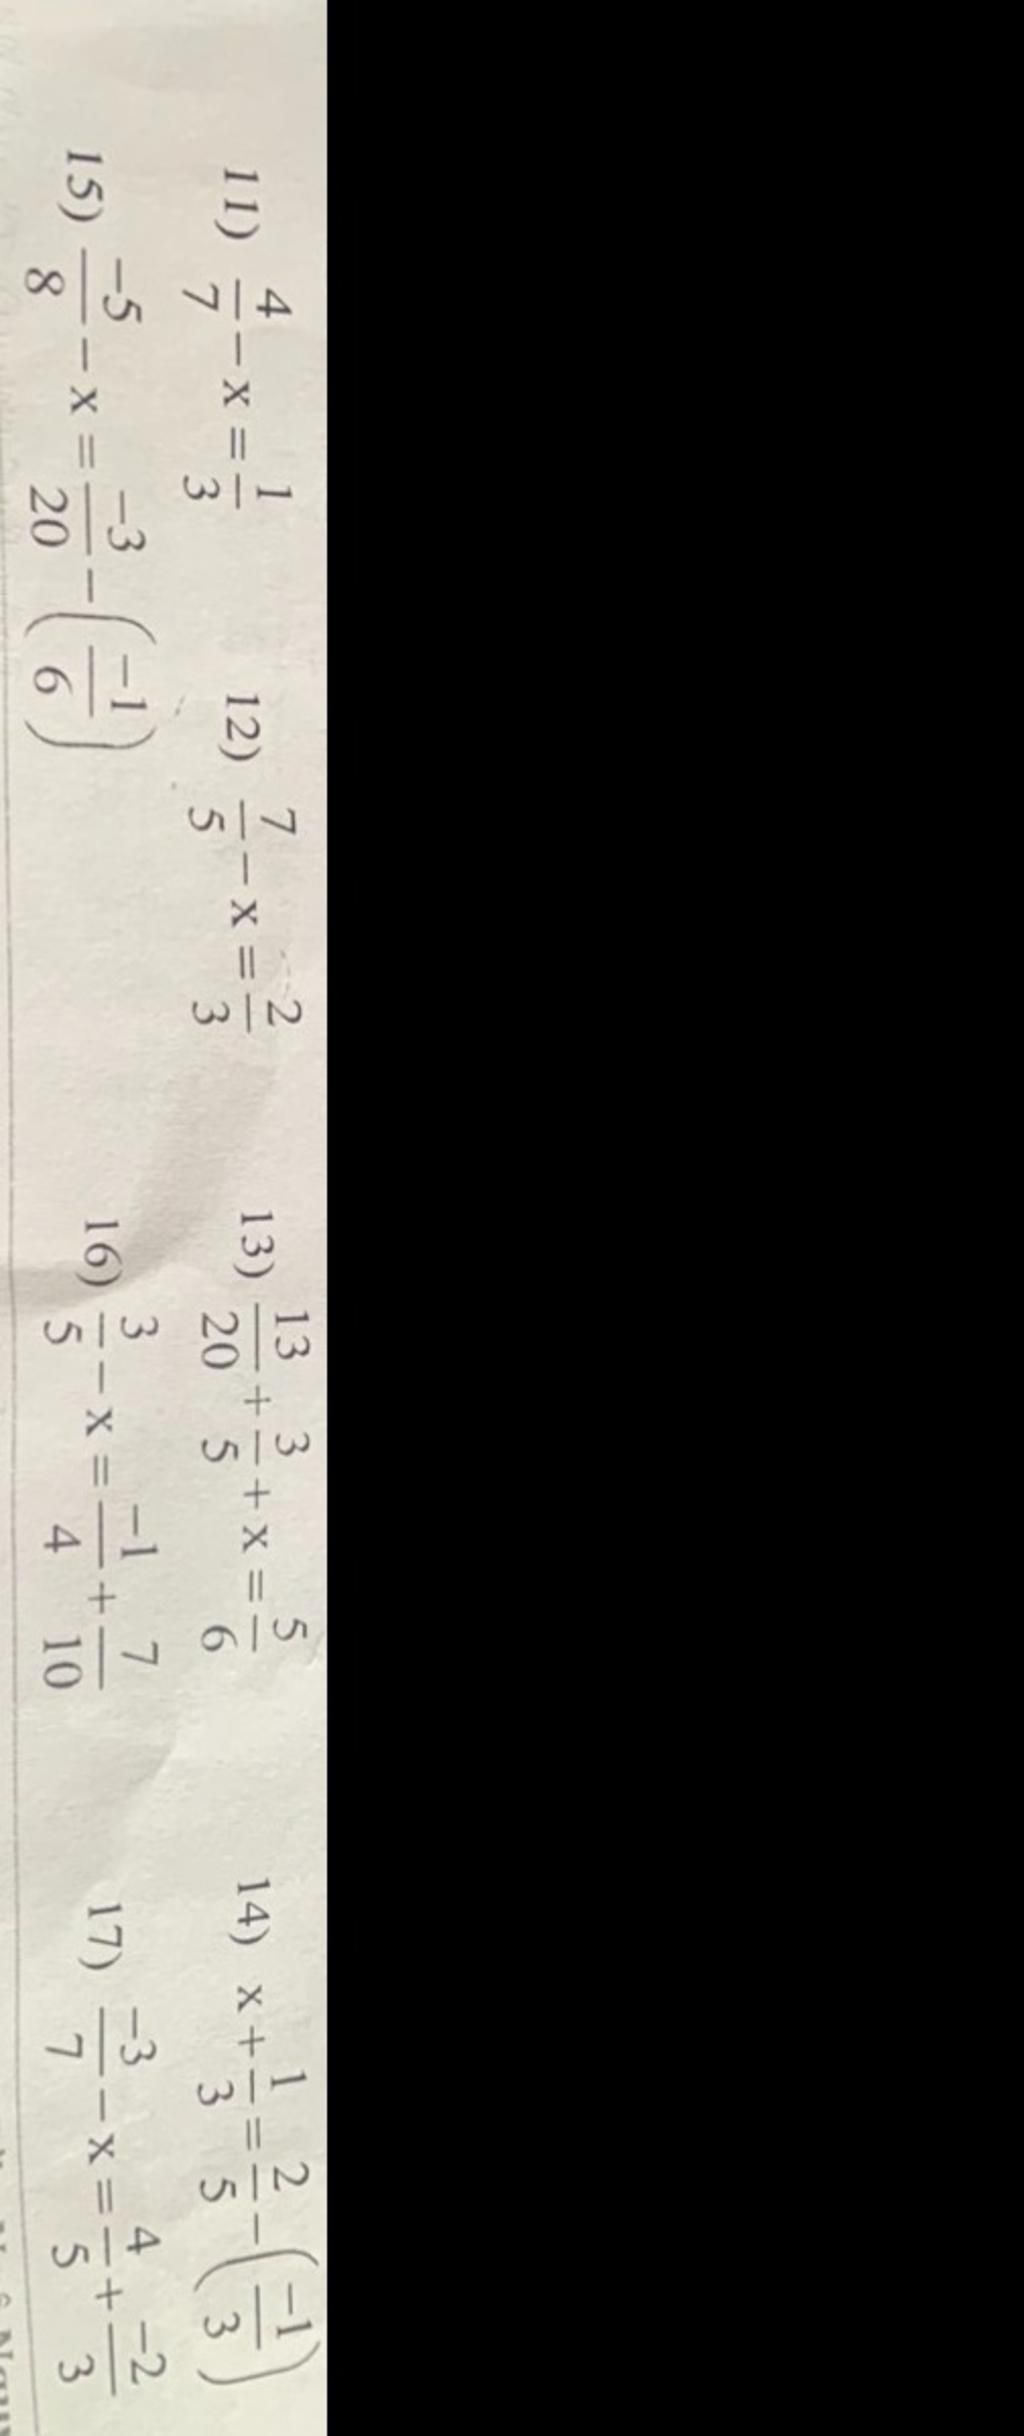 11) 4/7 - x = 1/3 12) 7/5 - x = 2/3 13) 13/20 + 3/5 + x = 5/6 14) x + 1/3 = 2/5 - (-1/3)
15) -5/8 - x = -3/20 - (-1/6) 16) 3/5 - x = -1/4 + 7/10 17) -3/7 - x = 4/5 + -2/3